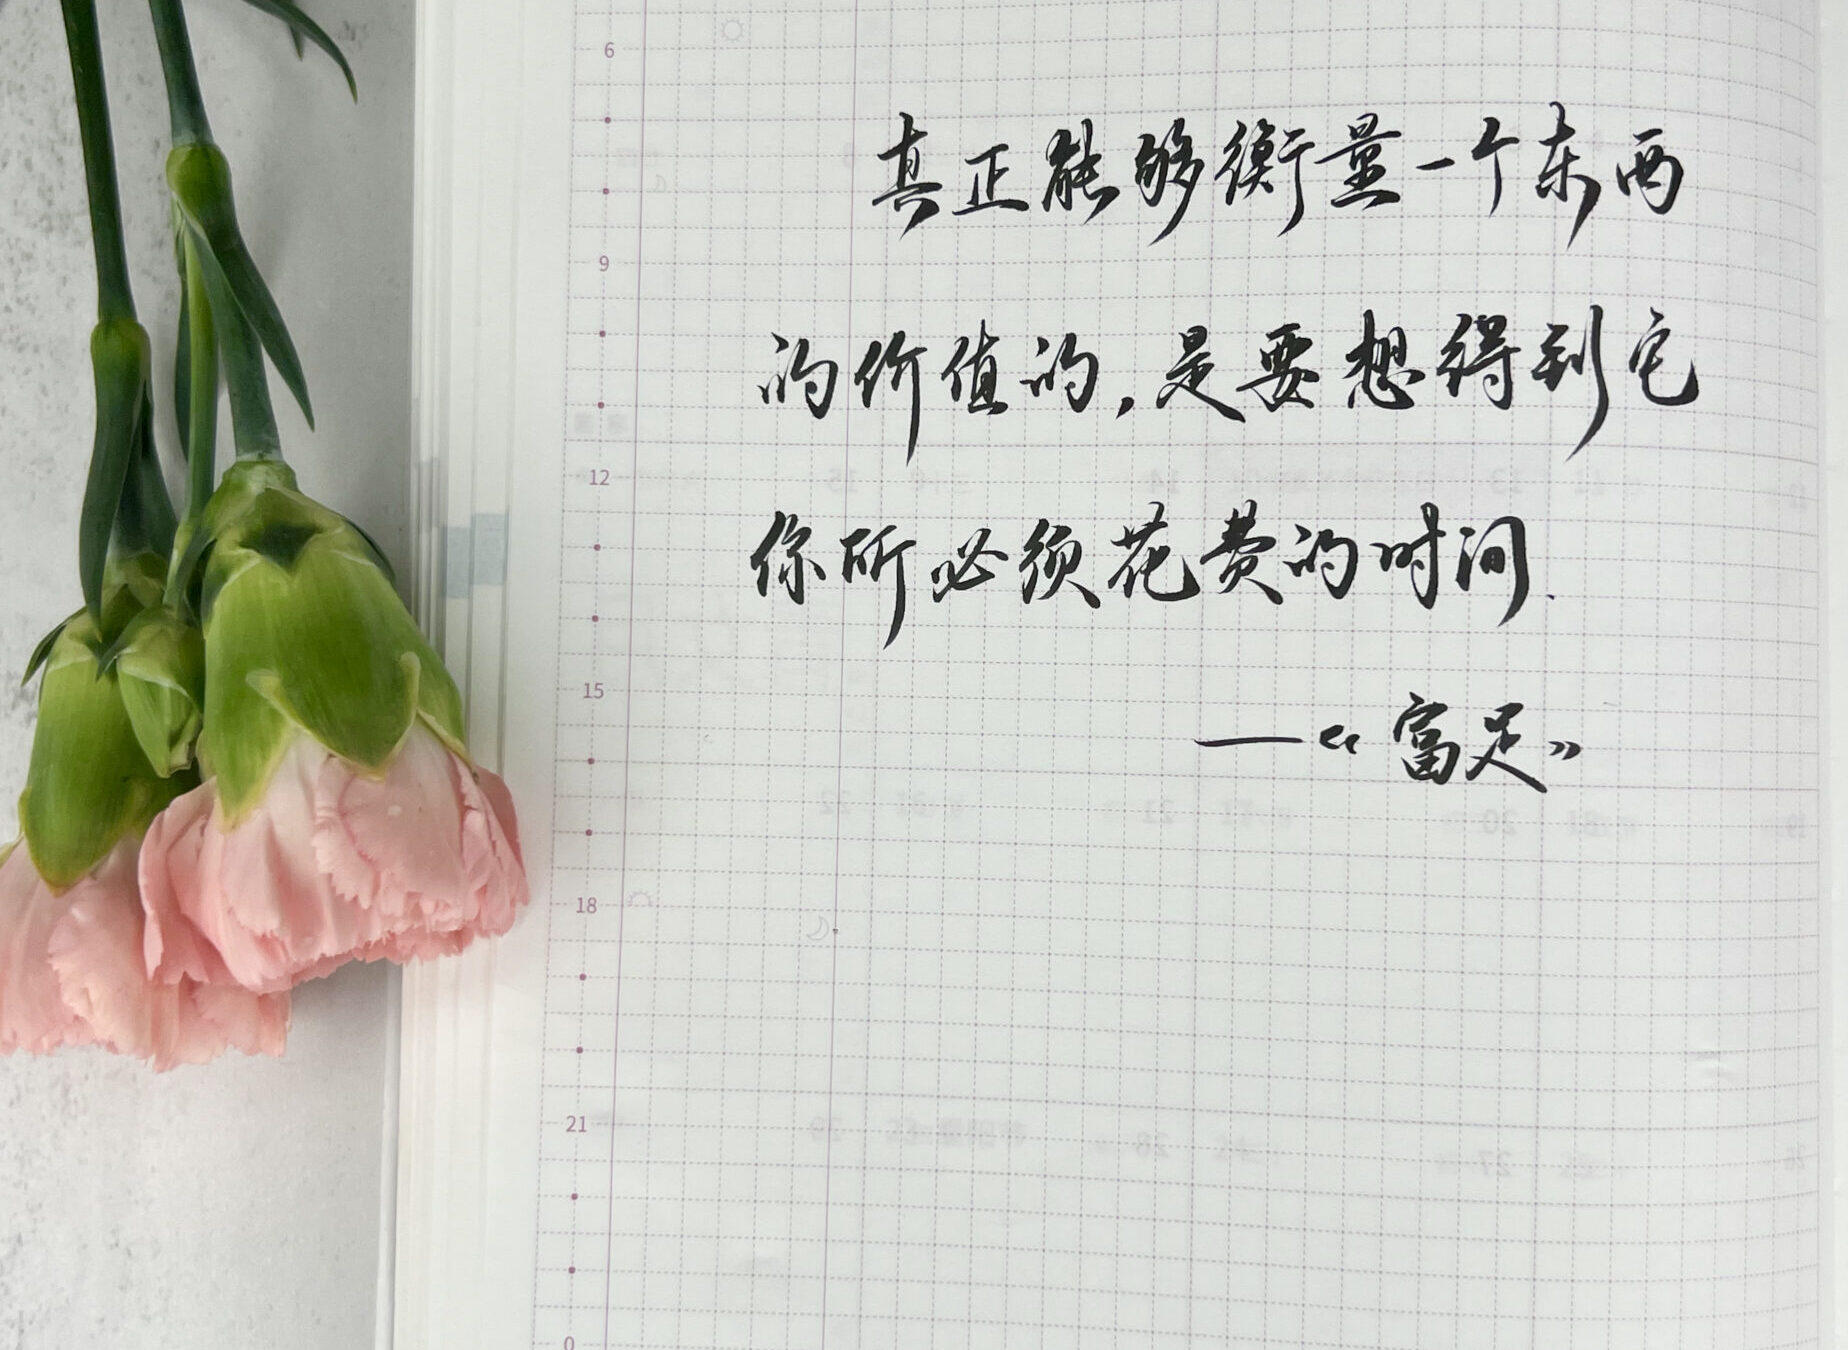 6
真正能够衡量一个东西
9
的价值的,是要想得到它
12
你所必须花费的时间.
15
—《富足》
18
21
0